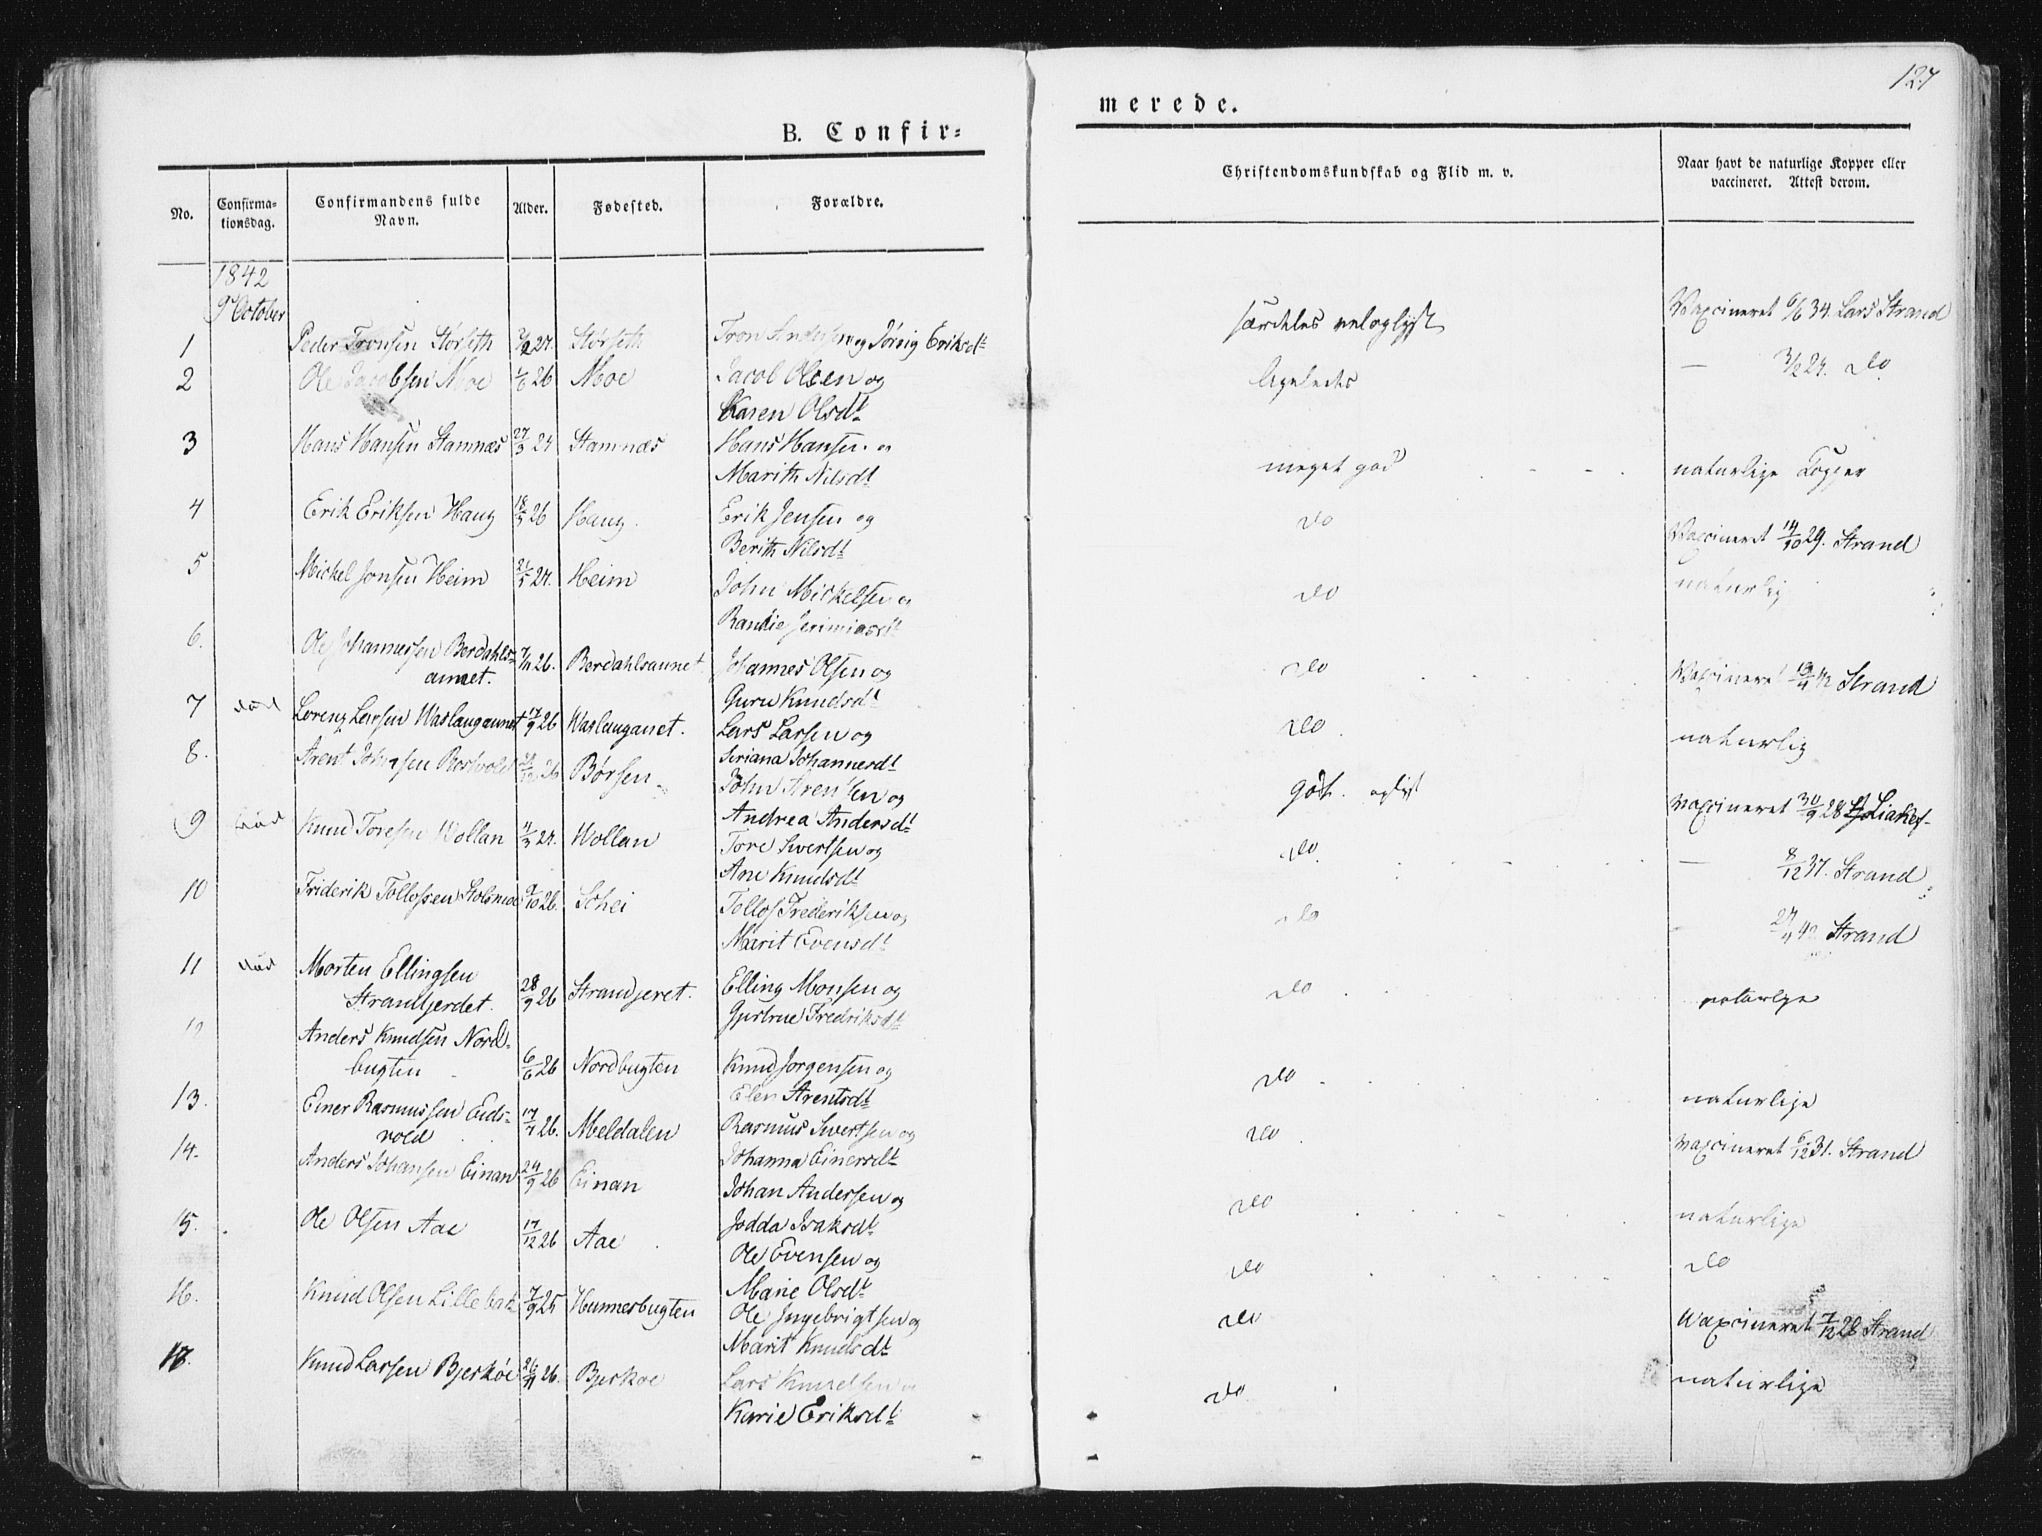 127
B. Confir=
merede.
No.
Confirma-
tionsdag.
Confirmandens fulde
Navn.
Alder.
Fødested.
Forældre.
Christendomskundskab og Flid m. v.
Naar havt de naturlige Kopper eller
vaccineret. Attest derom.
1842
9 October
1 Peder Tronsen Störseth Störseth Tron Andersen og Eriksdt
Vaxcineret 34. Lars Strand
2 Ole Jacobsen Moe 26 Moe Jacob Olsen og
Karen Olsdt
ligeledes — 3/2 27. do
3 Hans Hansen Stamnæs 27/3 27 Stamnæs Hans Hansen o
Marith Nilsdt
meget god naturlige Kopper
4 Erik Eriksen Haug 18/5 26 Haug. Erik Jensen og
Berith Nilsdt
do Vaccineret 14/10 29. Strand
5 Mickel Jonsen Heim 21/5 27. Heim John Mickelsen o
do naturlig
6. Ole Johannessen Berdahls-
aunet. 26. Berdahlsaunet Johannes Olsen og
Guru Knudsdt
do Vaxcineret 42 Strand
7 død Lorenz Larsen Waslaugaunet 17/9 26 Waslauganet. Lars Larsen og
Siriana Johannesdt
do. naturlig
8. Arent Johnsen 26 Børsen John Arentsen og
Andrea Andersdt
godt. oplyst Vaxcineret 30/9 28
9 Knud Toresen Wollan 27. Wollan Tore Sivertsen og
Ane Knudsdt
do. — 8/12 37. Strand
10 Friderik Tollofsen 9/10 26. Schei Tollof Frederiksen og
Marit Evensdt
do 42 Strand
11 død Morten Ellingsen
Strandjerdet. 28/9 26 Strandjeret. Elling Monsen og
Gjertrue Fredriksdt
do naturlige
12 Anders Knudsen Nord-
bugten 6/6 26 Nordbugten Knud Jorgensen og
Elen Arentsdt
do naturlige
13. Einer Rasmussen Eids-
vold 17/7 26. Meldalen Rasmus Sivertsen og
Johanna Einersdt
do Vaxcineret 6/12 31. Strand
14. Anders Johansen Einan 24/9 26 Einan Johan Andersen og
Jodda Isaksdt
do naturlige
15. Ole Olsen Aae 17/12 26 Aae Ole Evensen og
Marie Olsdt
do do
16. Knud Olsen 7/9 25 Hunnesbugten Ole Ingebrigtsen og
Marit Knudsdt
do Waxcineret 7/12 28 Strand
17. Knud Larsen Bjerkøe 26/11 26. Bjerkoe Lars
Karie Eriksdt
do. naturlige